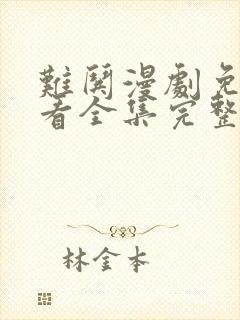 難關漫劇免
看全集完整
林金本